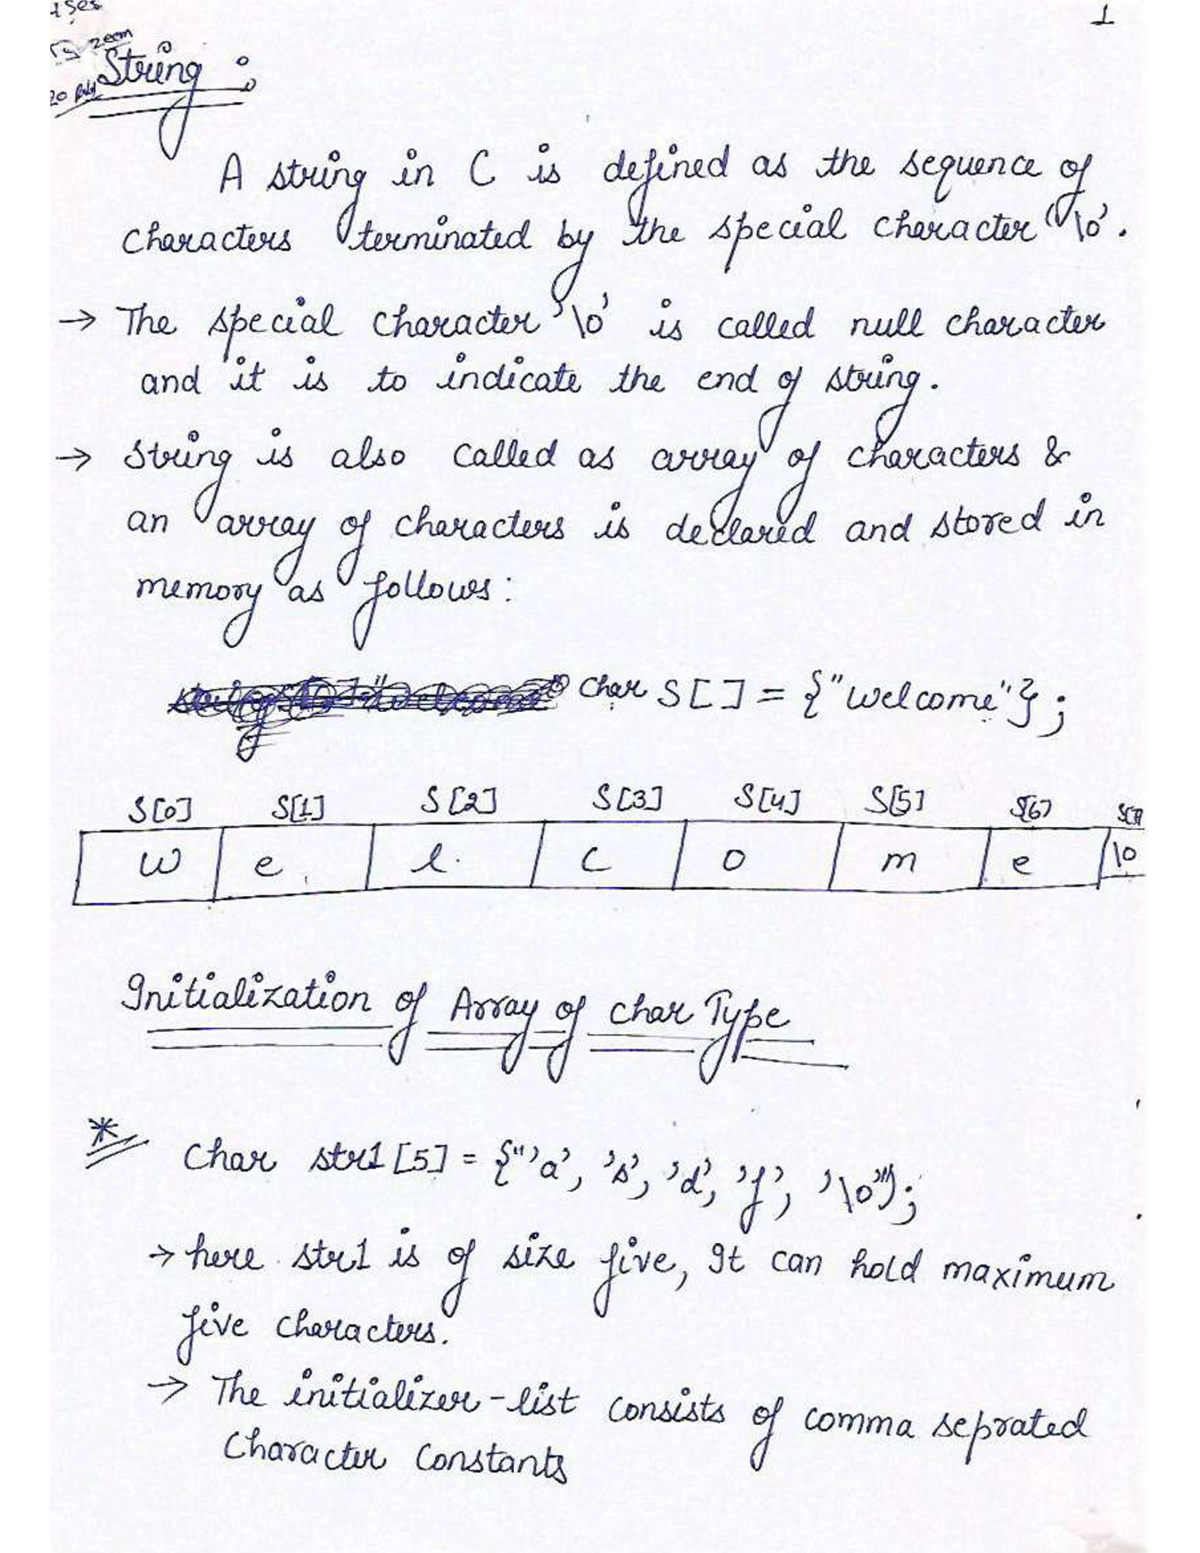 1
String :
A string in C is defined as the sequence of
characters terminated by the special character '\0'.
→ The special character '\0' is called null character
and it is to indicate the end of string.
→ String is also called as array of characters &
an array of characters is declared and stored in
memory as follows:
char S[] = {"welcome"};
S[0] S[1] S[2] S[3] S[4] S[5] S[6] S[7]
w e l c o m e \0
Initialization of Array of char Type
* Char str1[5] = {"'a', 's', 'd', 'f', '\0'"};
→ here str1 is of size five, It can hold maximum
five characters.
→ The initializer-list consists of comma seprated
Character Constants